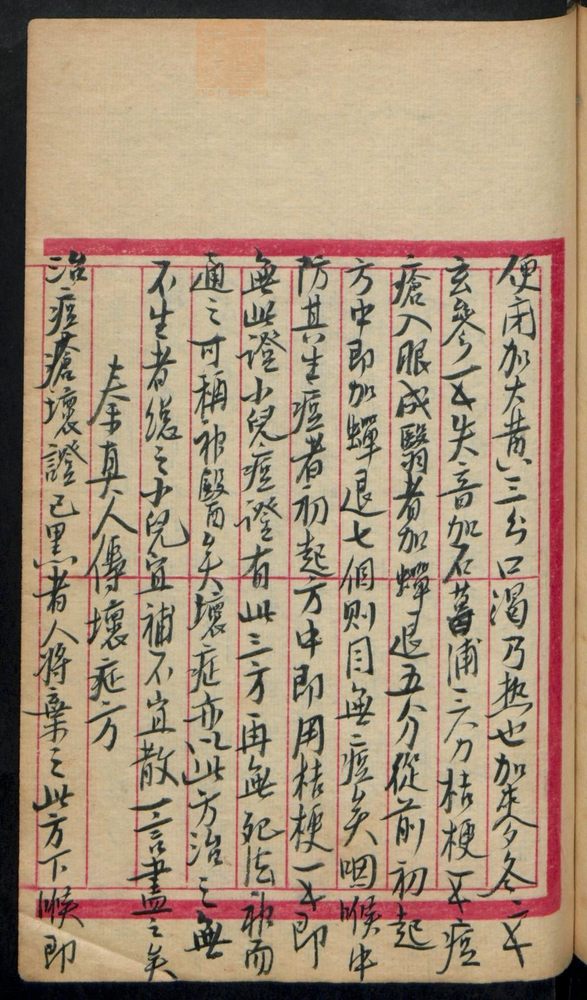 便闭加大黄三分口渴乃热也加麦冬二于
玄参一子失音加石菖浦三分桔梗一子痘
瘡入眼成翳者加蟬退五分從前初起
方中即加蟬退七個则目無痘矣咽喉中
防其生痘者初起方中即用桔梗一子即
無此證小兒痘證有此三方再無死法神而
通之可稱神醫矣壞症亦以此方治之無
不生者總之小兒宜補不宜散一言盡之矣
秦真人傳壞症方
治痘瘡壞證已黑者人將棄之此方下喉即